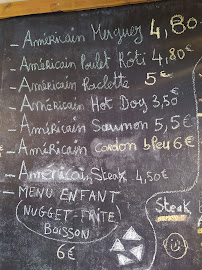 - Américain Merguez 4,80
- Américain Poulet Rôti 4,80€
- Américain Raclette 5€
- Américain Hot Dog 3,50€
- Américain Saumon 5,5€
- Américain Cordon bleu 6€
- Américain Steak 4,50€
- MENU ENFANT
NUGGET-FRITE
BOISSON
6€
Steak